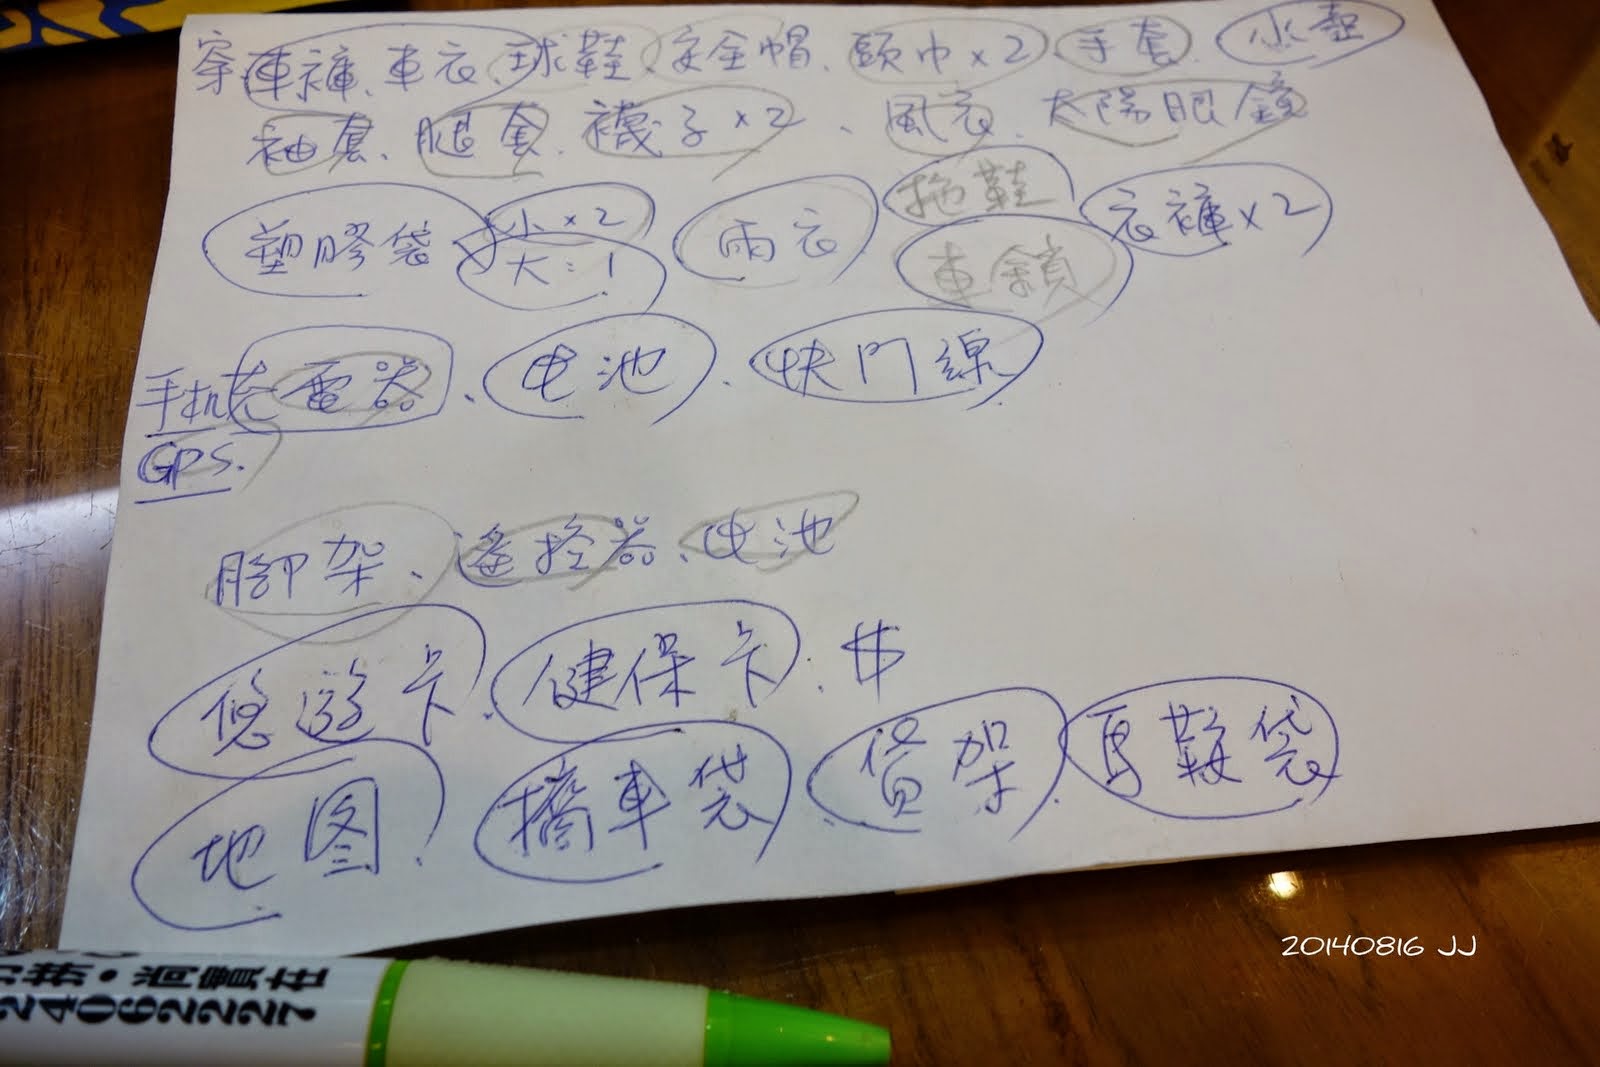 穿車褲、車衣、球鞋、安全帽、頭巾x2、手套、水壺
袖套、腿套、襪子x2、風衣、太陽眼鏡
塑膠袋 小x2 大:1 雨衣 拖鞋 車鎖 衣褲x2
手机充電器、电池、快門線
GPS.
腳架、遙控器、电池
悠遊卡、健保卡、$
地图、攜車袋、貨架、馬鞍袋
20140816 JJ
24062227